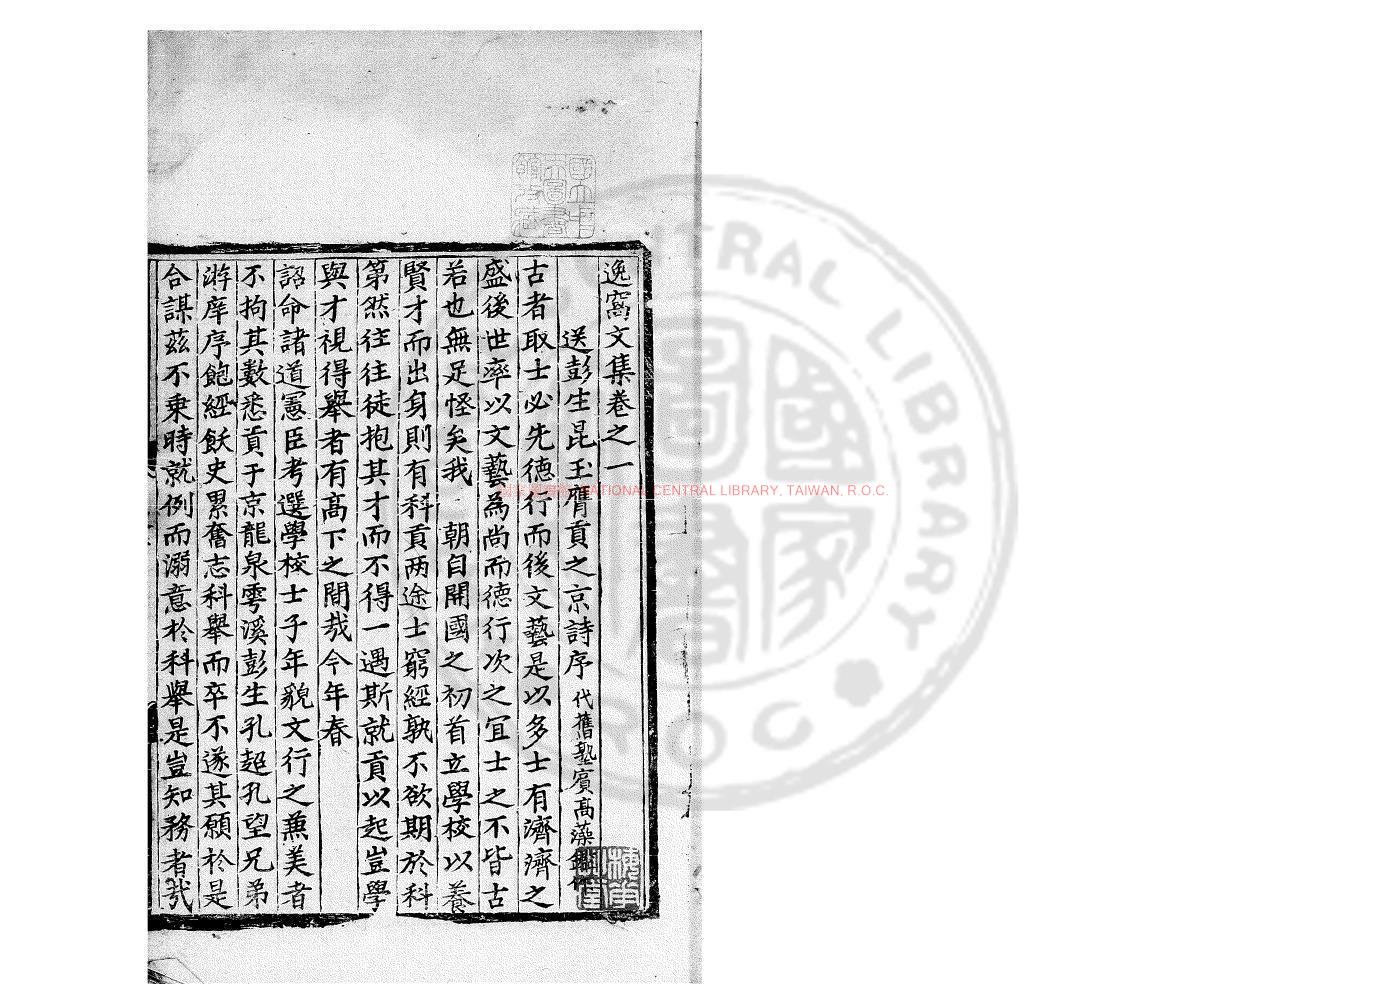 逸窩文集卷之一
送彭生昆玉膺貢之京詩序 代舊塾賓高藻鑑作
古者取士必先德行而後文藝是以多士有濟濟之
盛後世率以文藝為尚而德行次之冝士之不皆古
若也無足怪矣我 朝自開國之初首立學校以養
賢才而出身則有科貢两途士窮經孰不欲期於科
第然往往徒抱其才而不得一遇斯就貢以起豈學
與才視得舉者有高下之間哉今年春
詔命諸道憲臣考選學校士子年貌文行之兼美者
不拘其數悉貢于京龍泉雩溪彭生孔超孔望兄弟
游庠序飽經飫史累奮志科舉而卒不遂其願於是
合謀茲不乗時就例而溺意於科舉是豈知務者哉
NATIONAL CENTRAL LIBRARY, TAIWAN, R.O.C.
CENTRAL LIBRARY
R.O.C.
國家圖書